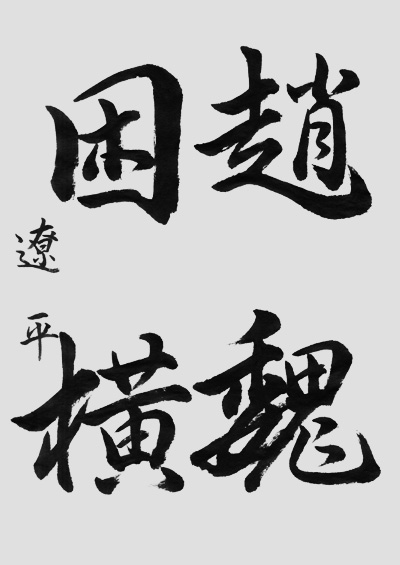 趙魏
困橫
遼平